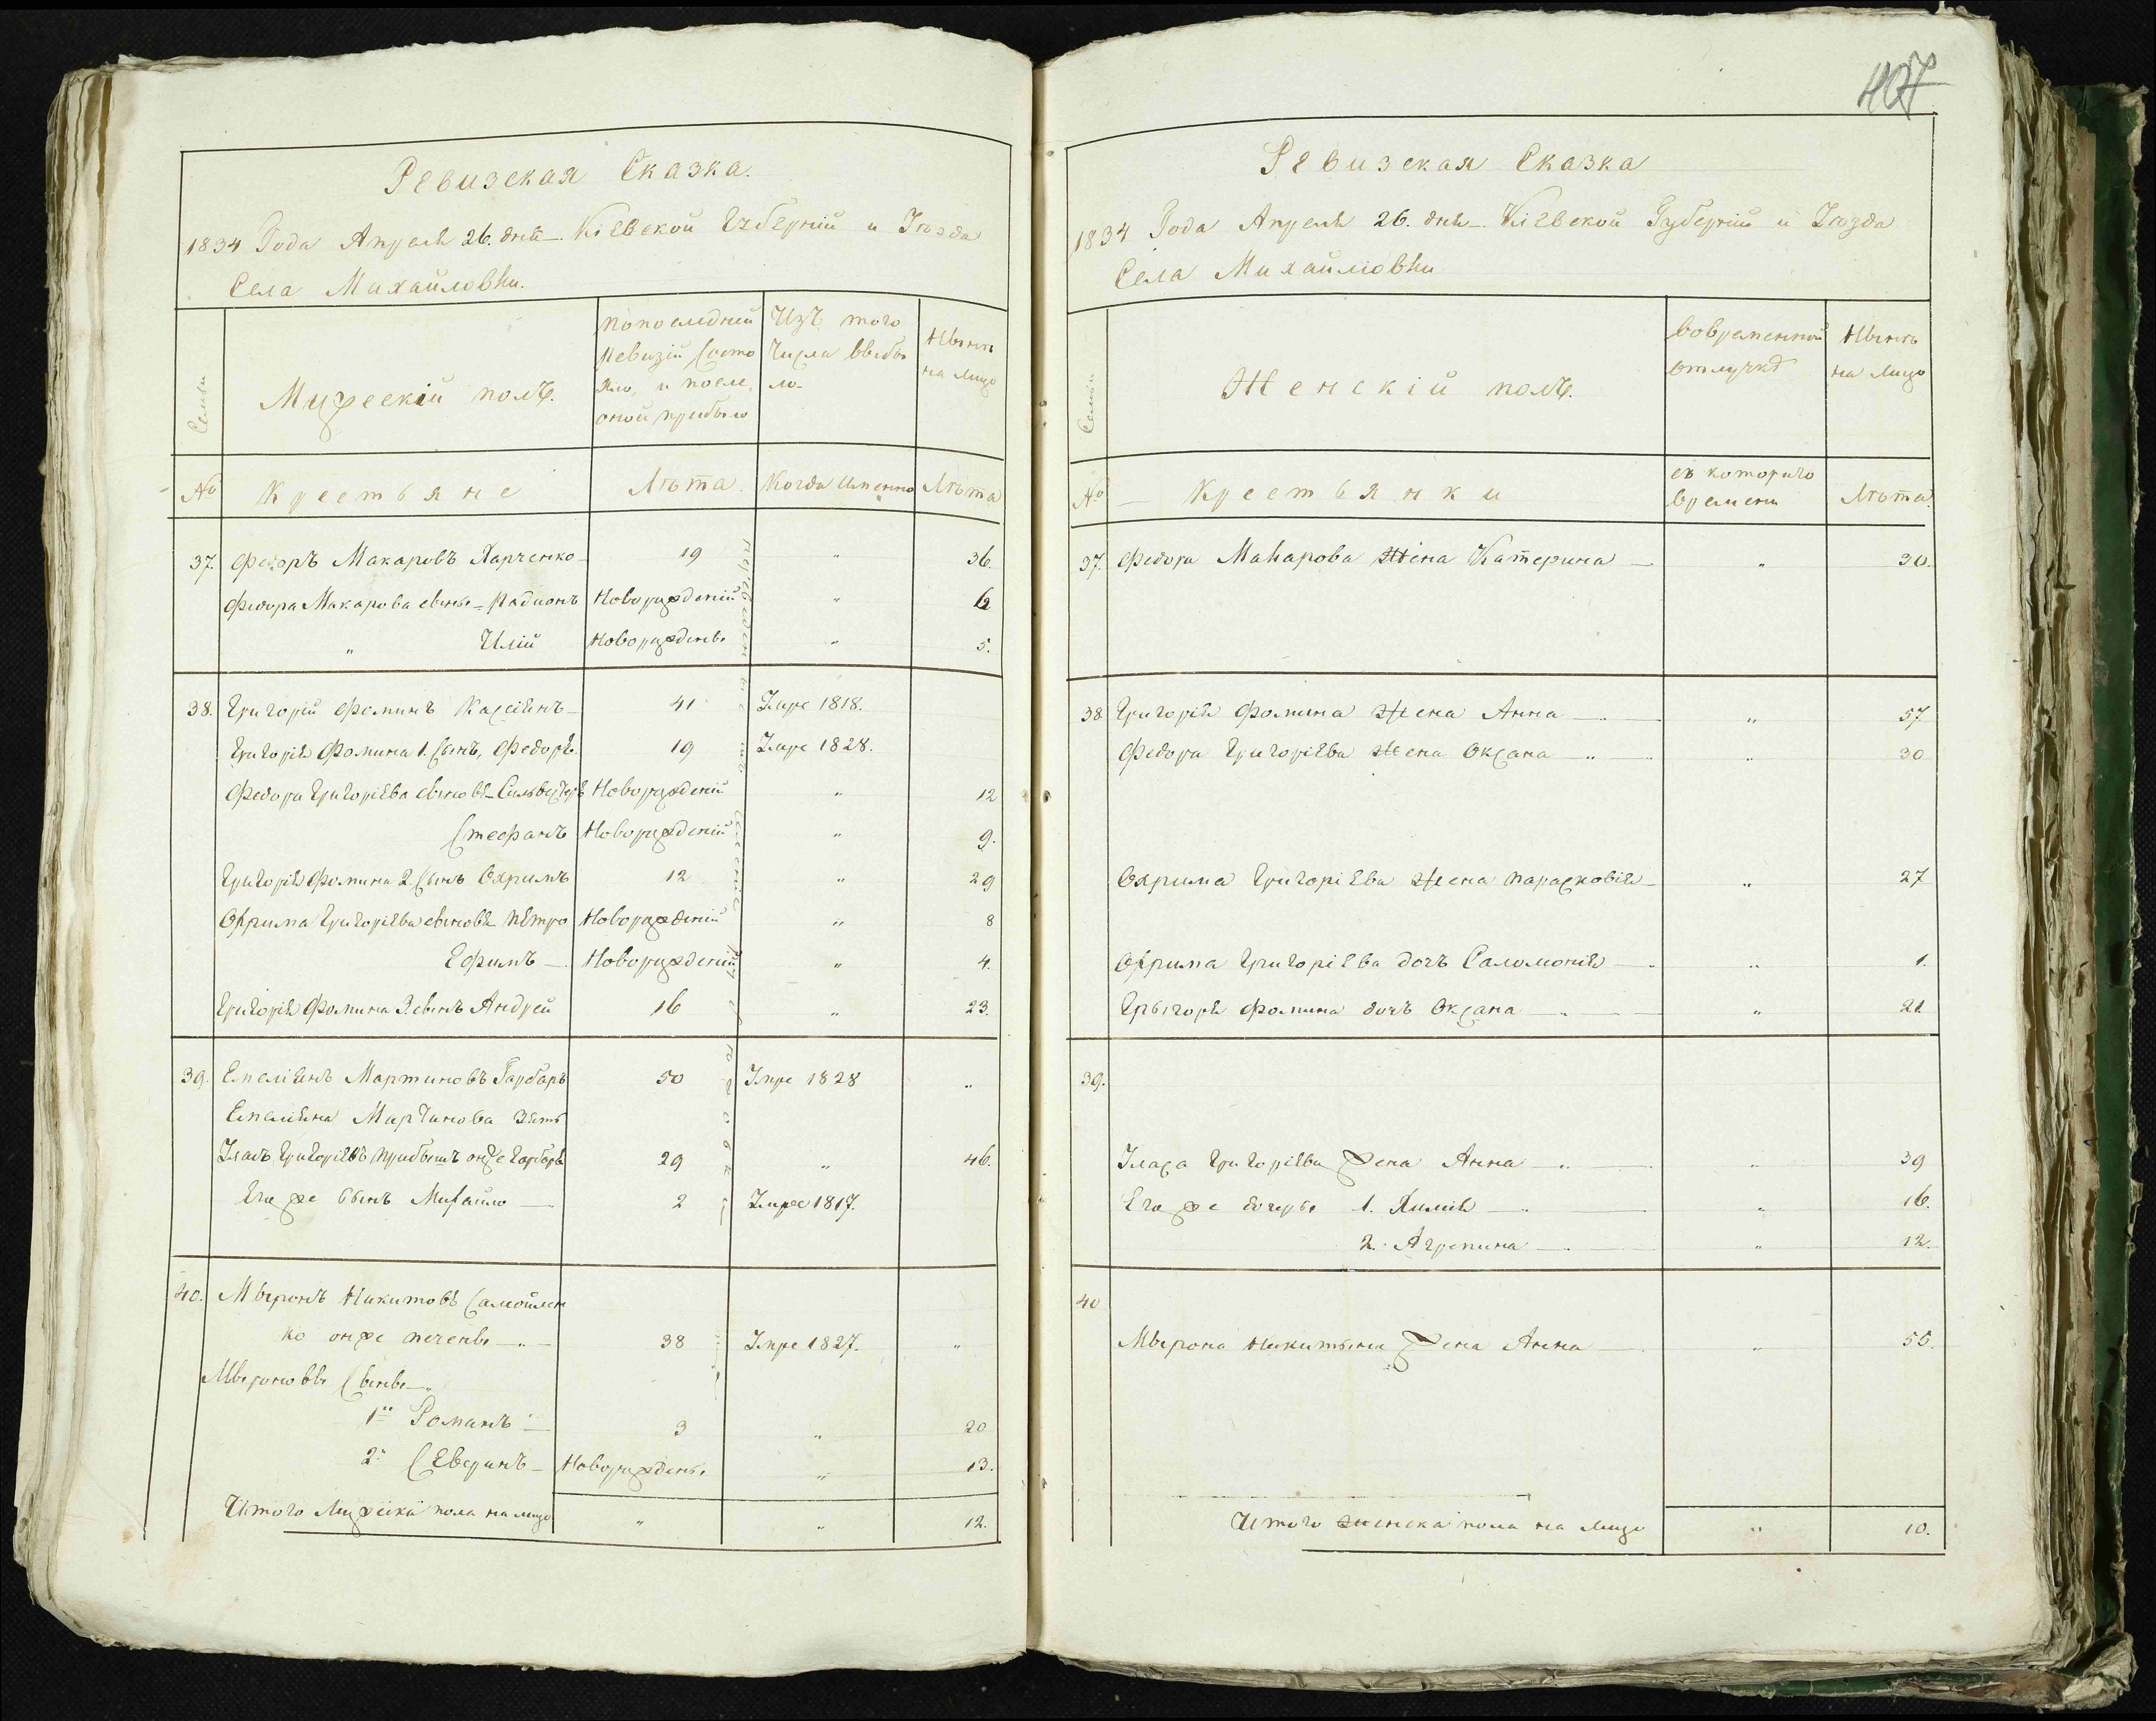 407
Ревизская Сказка.
1834 Года Апреля 26. дня Кіевской Губерніи и Уѣзда
Села Михайловки.
Семьи
Мужескій полъ.
По последней
ревизіи состо
яло, и после
оной прибыло
Изъ того
числа выбы
ло
Нынѣ
на лицо
№
Крестьяне
Лѣта.
Когда именно
Лѣта
37. Федоръ Макаровъ Харченко 19 " 36.
Федора Макарова сыны Радионъ Новорожденій " 12
" Илій Новорожденъ " 5.
38. Григорій Фоминъ Касіянъ 41 Умре 1818.
Григорія Фомина 1. сынъ, Федоръ 19 Умре 1828.
Федора Григоріева сыновя Сильвестръ Новорожденій " 12
Стефанъ Новорожденій " 9.
Григорія Фомина 2. сынъ Охримъ 12 " 29
Охрима Григоріева сыновя Петро Новорожденій " 8
Ефимъ Новорожденій " 4.
Григорія Фомина 3. сынъ Андрей 16 " 23.
39. Емеліянъ Мартиновъ Гарбаръ 50 Умре 1828 "
Емеліяна Мартинова Зять
Уласъ Григоріевъ прибывшъ онже Гарбаръ 29 " 46.
Его же сынъ Михайло 2 Умре 1817.
40. Мыронъ Никитовъ Самойлен
ко онже 38 Умре 1827. "
Мыроновы сыны
1й Романъ 3 " 20
2й Северинъ Новорожденъ " 13.
Итого Мужеска пола на лицо " " 12.
Ревизская Сказка
1834 Года Апреля 26. дня Кіевской Губерніи и Уѣзда
Села Михайловки
Семьи
Женскій полъ.
Вовременной
отлучкѣ
Нынѣ
на лицо
№
Крестьянки
съ котораго
времени
Лѣта.
37. Федора Макарова жена Катерина " 30.
38. Григорія Фомина жена Анна " 57
Федора Григоріева жена Оксана " 30
Охрима Григоріева жена Парасковія " 27
Охрима Григоріева дочъ Саломонія " 1.
Грыгорія Фомина дочъ Оксана " 21.
39.
Уласа Григоріева жена Анна " 39
Его же дочеры 1. Химія " 16.
2. Агрепина " 12.
40
Мырона Никитына жена Анна " 55.
Итого женска пола на лицо " 10.